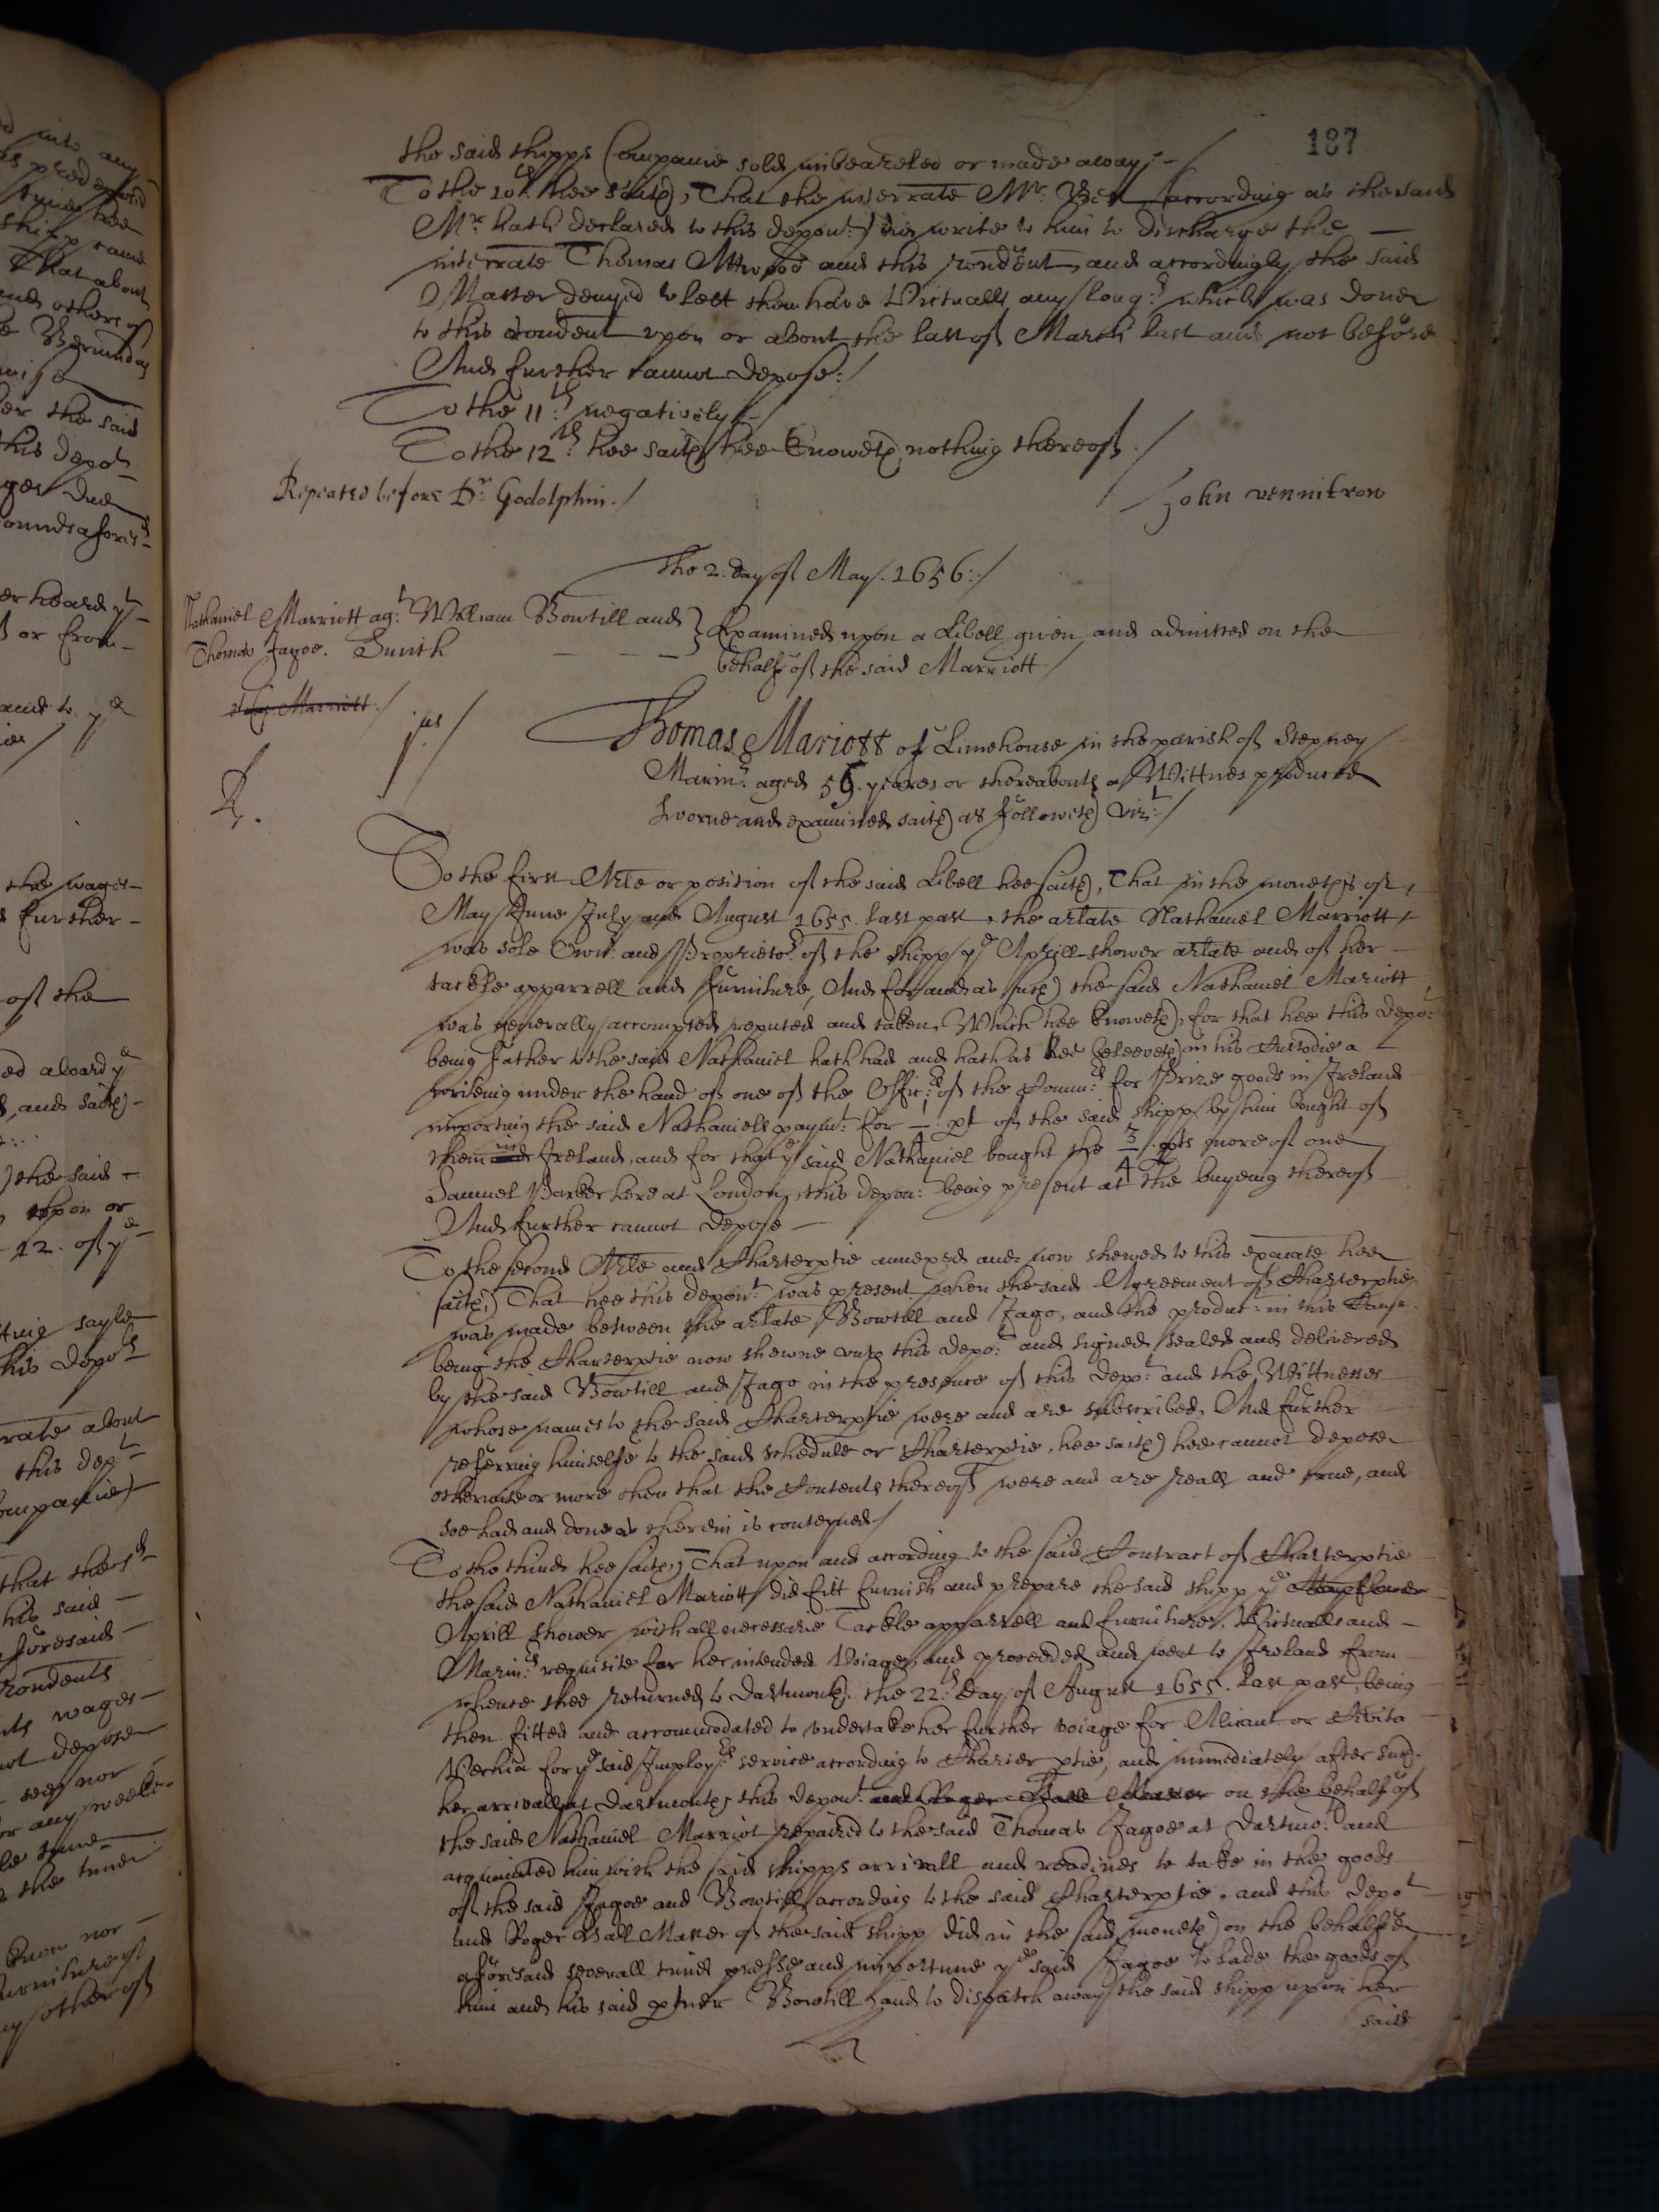 187
the said shipps Companie sold imbeazeled or made away:-
To the 10th hee saith, That the interrate Mr. (according as the said
Mr hath declared to this depont) did write to him to discharge the
interrate Thomas Attwood and this rondent, and accordingly the said
Master denyed to lett them have Victualls any long:r which was done
to this rondent upon or about the last of March last and not before
And further cannot depose:/
To the 11:th negatively/-
To the 12:th hee saith hee knoweth nothing thereof./
Repeated before Dr. Godolphin./
John
The 2. day of May. 1656:/
Nathaniel Marriott ag:t William Bowtill and
Thomas Jagoe. Smith
Examined upon a Libell given and admitted on the
behalfe of the said Marriott/
Marriott/
jus/
Thomas Mariott of Limehouse in the parish of Stepney
Marin:r aged 59. yeares or thereabouts a Wittnes produced
sworne and examined saith as followeth vizt:/
To the first Arle or position of the said Libell hee saith, That in the moneths of
May June July and August 1655. last past the arlate Nathaniel Marriott
was sole Own:r and Proprieto:r of the shipp ye Aprill shower arlate and of her
tackle apparrell and furniture, And for and as such the said Nathaniel Mariott
was generally accompted reputed and taken, Which hee knoweth, for that hee this depo:t
being father to the said Nathaniel hath had and hath as hee beleeveth in his Custodie a
writeing under the hand of one of the Offic:rs of the Comm:rs for Prize goods in Ireland
importing the said Nathaniels paym:t for 1/4: pt of the said shipp by him bought of
them in Ireland, and for that ye said Nathaniel bought the 3/4 pts more of one
Samuel Parker here at London, this depon:t being present at the buyeing thereof
And further cannot depose
To the second Arle and Charterptie annexed and now shewed to this exãiate hee
saith, That hee this depont: was present when the said Agreement of Charterptie
was made between the arlate Bowtill and Jago, and the produc:t in this Cause.
being the Charterptie now shewne unto this depo:t and signed sealed and delivered
by the said Bowtill and Jago in the presence of this depo:t and the Wittnesses
whose names to the said Charterptie were and are subscribed. And further
referring himselfe to the said schedule or Charterptie, hee saith hee cannot depose
otherwise or more then that the Contents thereof were and are reall and true, and
soe had and done as therein is conteyned/
To the third hee saith, That upon and according to the said Contract of Charterptie
the said Nathaniel Mariott did fitt furnish and prepare the said shipp ye Mayflower
Aprill shower with all necessarie Tackle apparrell and furniture, Victualls and
Marin:rs requisite for her intended Voiage, and proceeded and went to Ireland from
whence shee returned to Dartmouth. the 22:th day of August 1655. last past, being
then fitted and accommodated to undertake her further voiage for Alicant or Civita
Vechia for ye said Imploy:rs service according to Charterptie, and immediately after such
her arrivall at Dartmouth, this depon:t and Roger Ball Master on the behalf of
the said Nathaniel Marriot repaired to the said Thomas Jagoe at Dartmo:th and
acquainted him with the said shipps arrivall and readines to take in the goods
of the said Jagoe and Bowtill according to the said Charterptie. and this depo:t
and Roger Ball Master of the said shipp did in the said moneth on the behalfe
aforesaid severall times presse and importune ye said Jagoe to lade the goods of
him and his said ptner Bowtill, and to dispatch away the said shipp upon her
said